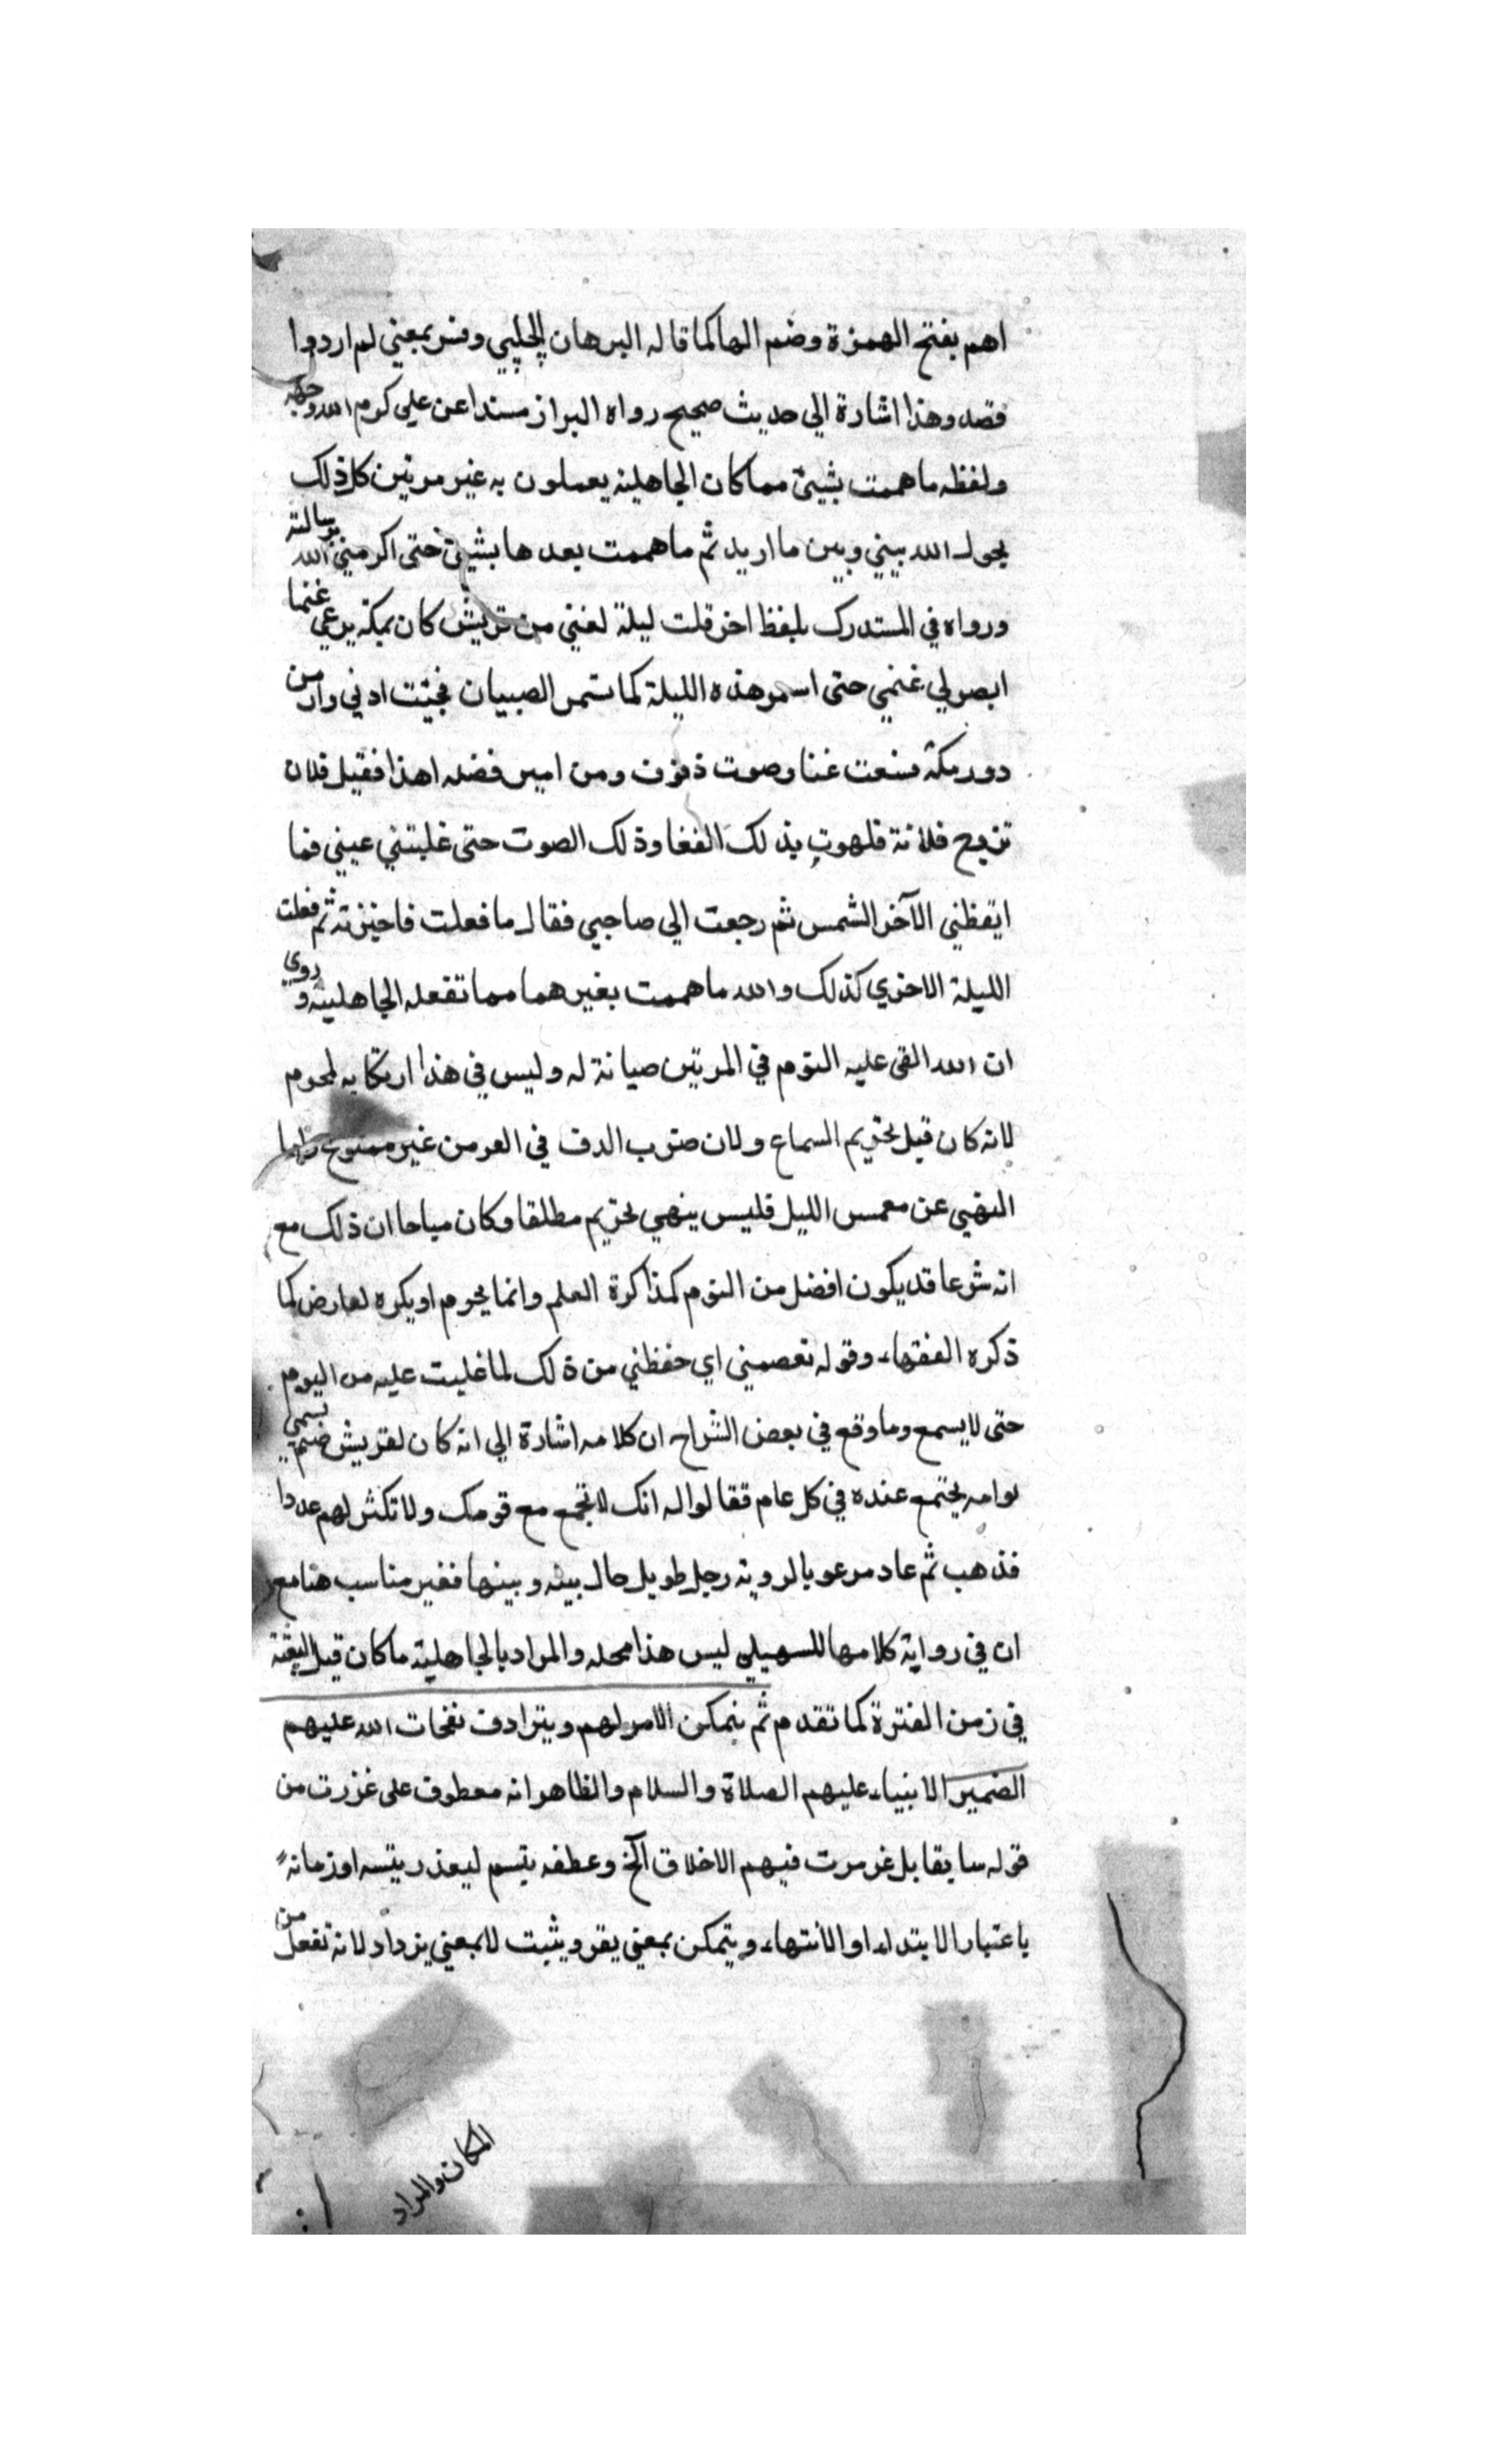 اهم بفتح الهمزة وضم الها كما قاله البرهان الحلبي وفسر بمعني لم ارد وا
فقصد وهذا اشارة الي حديث صحيح رواه البزاز مسندا عن علي كرم الله وجهه
ولفظه ما هممت بشيئ مما كان الجاهلية يعملون به غير مرتين كل ذلك
يحول الله بيني وبين ما اريد ثم ما هممت بعدها بشيئ حتى اكرمني الله برسالته
ورواه في المستدرك بلفظ اخر قلت ليلة لفتي من قريش كان بمكة يرعي غنما
ابصر لي غنمي حتى اسمر هذه الليلة كما تسمر الصبيان فجئت ادني دار من
دور مكة فسمعت غنا وصوت دفوف ومن امير فقلت ما هذا فقيل فلان
تزوج فلانة فلهوت بذلك الغنا وذلك الصوت حتى غلبتني عيني فما
ايقظني الآحر الشمس ثم رجعت الي صاحبي فقال ما فعلت فاخبرته ثم فعلت
الليلة الاخري كذلك والله ما هممت بغيرهما مما تفعله الجاهلية وروي
ان الله القى عليه النوم في المرتين صيانة له وليس في هذا ارتكابه لمحرم
لانه كان قبل تحريم السماع ولان ضرب الدف في العرس غير ممنوع واما
النهي عن سمر الليل فليس بنهي تحريم مطلقا وكان مباحا اذ ذلك مع
انه شرعا قد يكون افضل من النوم كمذاكرة العلم وانما يحرم او يكره لعارض كما
ذكره الفقهاء وقوله فعصمني اي حفظني من ذلك لما غلبت عليه من النوم
حتى لا يسمع وما وقع في بعض الشراح ان كلامه اشارة الي انه كان لقريش صنم يسمي
بوامه يجتمع عنده في كل عام فقالوا له انك لا تجمع مع قومك ولا تكثر لهم عددا
فذهب ثم عاد مرعوبا لرويته رجل طويل حال بينه وبينها فغير مناسب هنا مع
ان في رواية كلامها للسهيلي ليس هذا محله والمراد بالجاهلية ما كان قبل البعثة
في زمن الفترة كما تقدم ثم يتمكن الامر لهم ويترادف نفحات الله عليهم
الضمير الانبياء عليهم الصلاة والسلام والظاهر انه معطوف على غزرت من
قوله سابقا بل غرست فيهم الاخلاق آلخ وعطفه بثم لبعد رتبته او زمانه
باعتبار الابتداء او الانتهاء ويتمكن بمعني يقر ويثبت لا بمعني يزداد لانه تفعل من
المكان والمراد